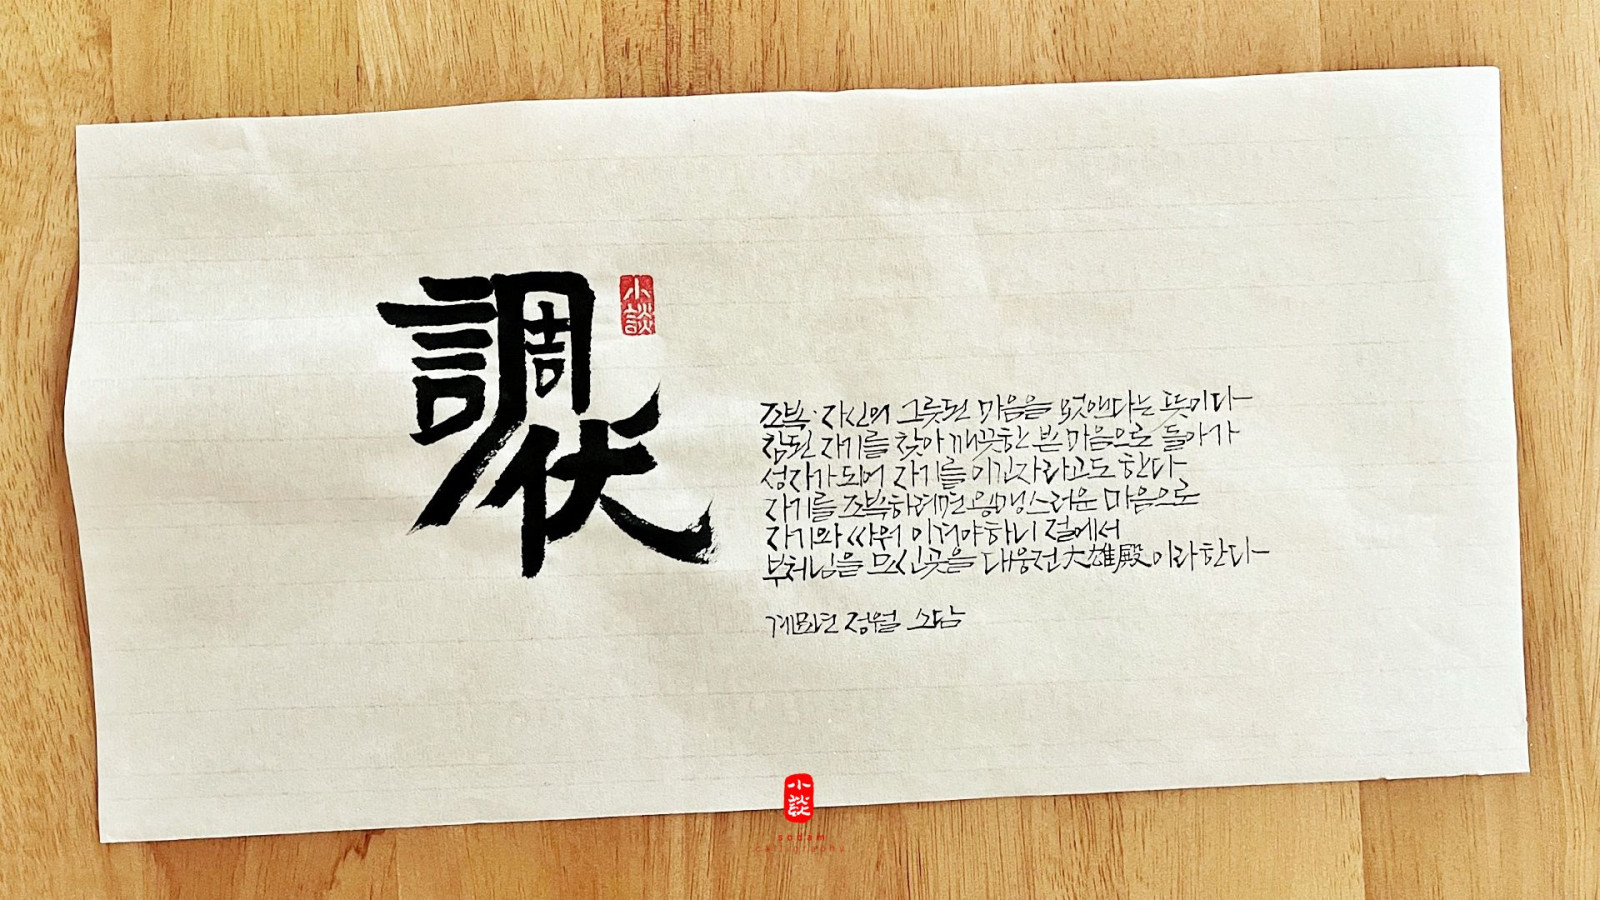 調伏
小談
조복·자신의 그릇된 마음을 멋앤다는 뜻이다
참된 자기를 찾아 깨끗한 본 마음으로 돌아가
성자가 되어 자기를 이긴자라고도 한다
자기를 조복하려면 용맹스러운 마음으로
자기와 싸워 이겨야하니 절에서
부처님을 모신곳을 대웅전大雄殿이라한다
계묘년 정월 소담
小談
sodam
calligraphy